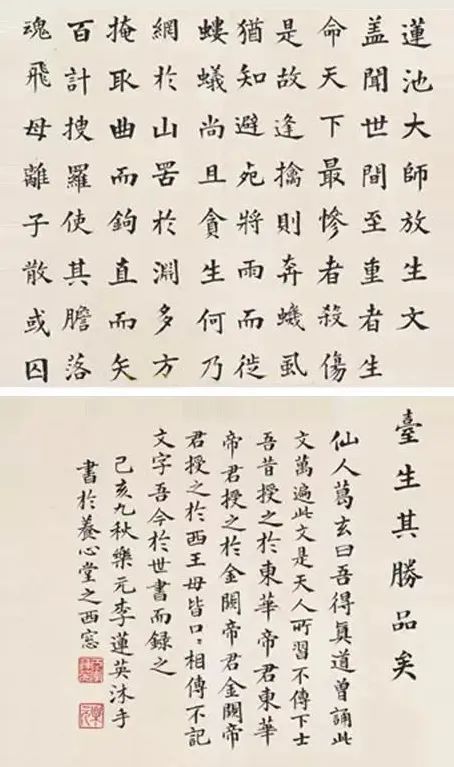 蓮池大師放生文
盖聞世間至重者生
命天下最慘者殺傷
是故逢擒則奔蟣虱
猶知避死將雨而徙
螻蟻尚且貪生何乃
網於山罟於淵多方
掩取曲而鉤直而矢
百計搜羅使其膽落
魂飛母離子散或囚
臺生其勝品矣
仙人葛玄曰吾得眞道曾誦此
文萬遍此文是天人所習不傳下士
吾昔授之於東華帝君東華
帝君授之於金闕帝君金闕帝
君授之於西王母皆口〻相傳不記
文字吾今於世書而録之
己亥九秋樂元李蓮英沐手
書於養心堂之西窓